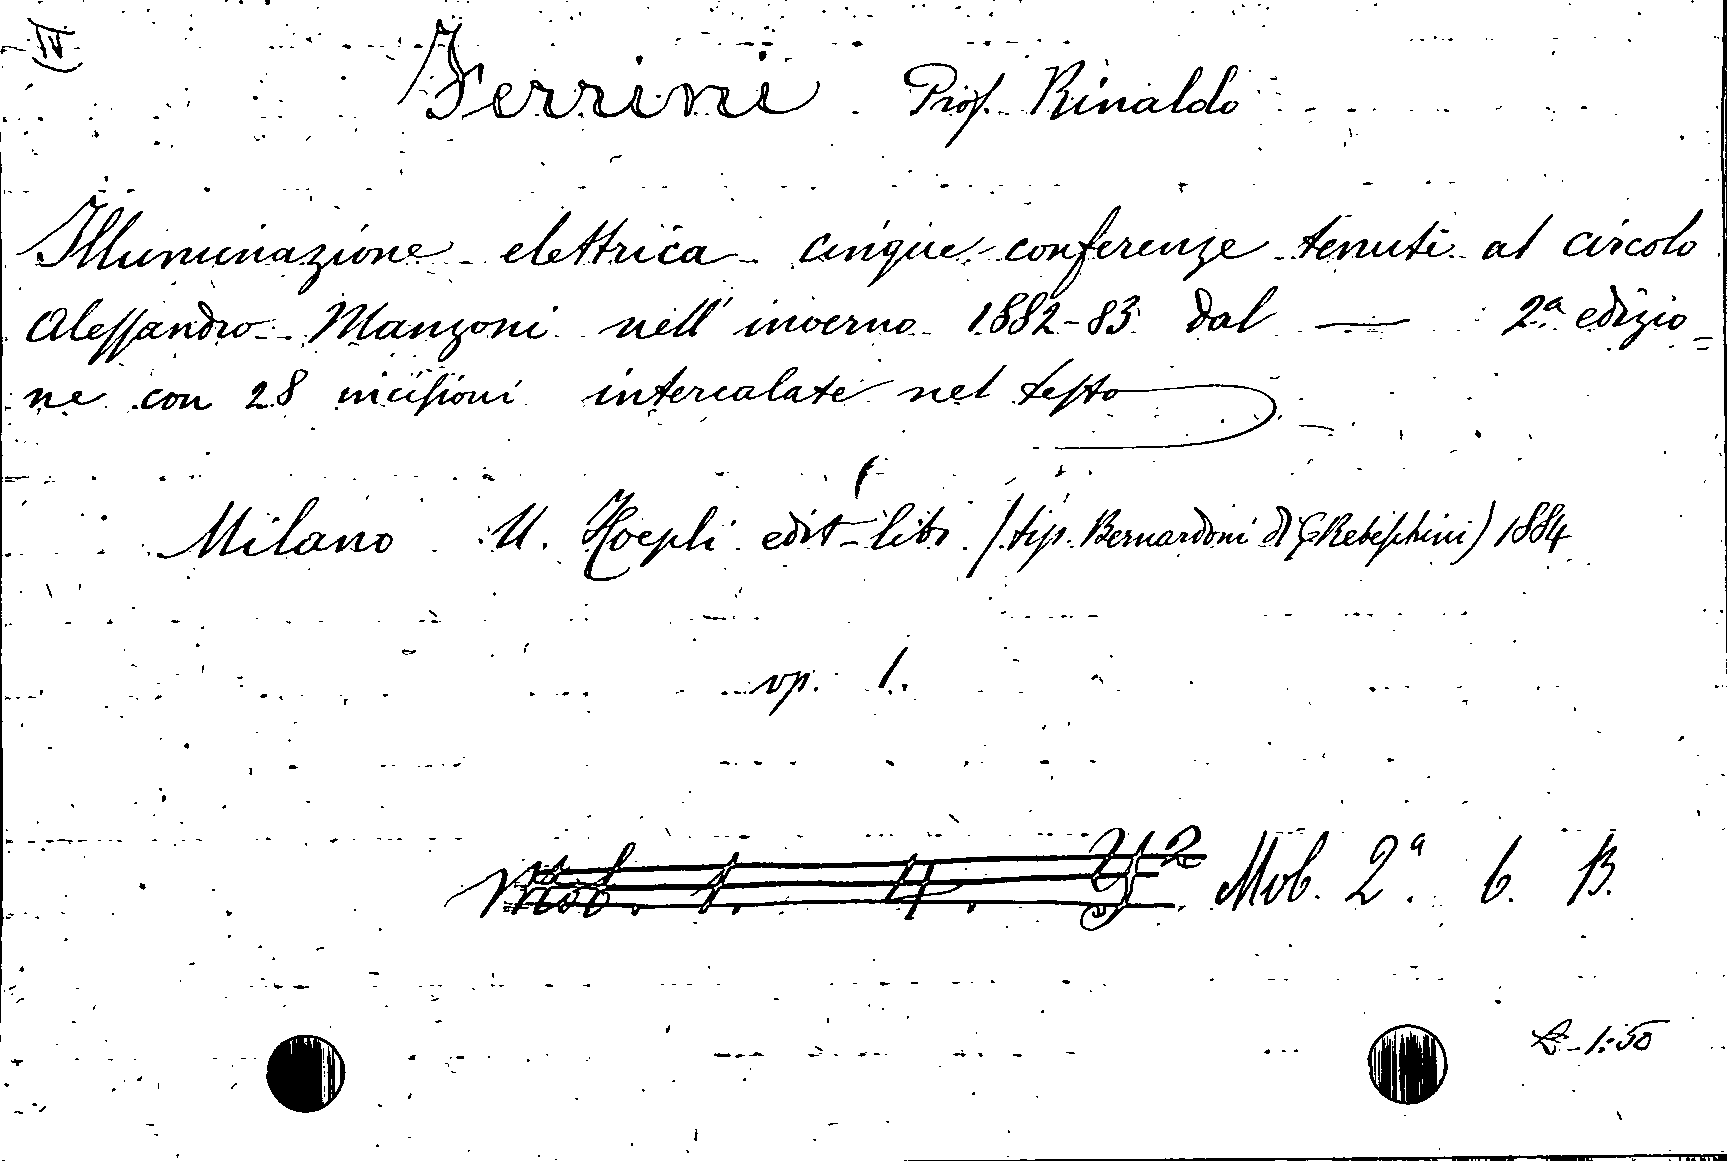 IV
Ferrini Prof. Rinaldo
Illuminazione elettrica cinque conferenze tenute al circolo
Alessandro Manzoni nell' inverno 1882-83 dal — 2ª edizio=
ne con 28 incisioni intercalate nel testo
Milano U. Hoepli edit-libr. (tip. Bernardoni di C. Rebeschini) 1884
vp. 1.
Mob. 1. 4. Mob. 2ª. 6. B.
L. 1:50